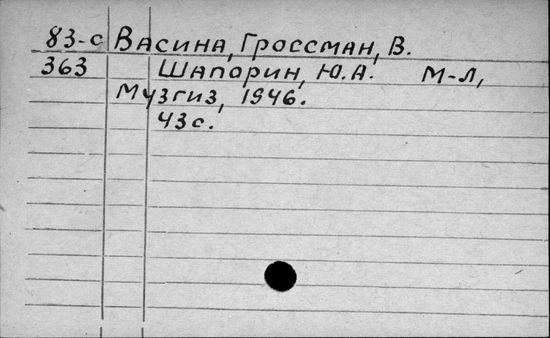 83-с Васина, Гроссман, В.
363 Шапорин, Ю.А. М-Л,
Музгиз, 1946.
43с.